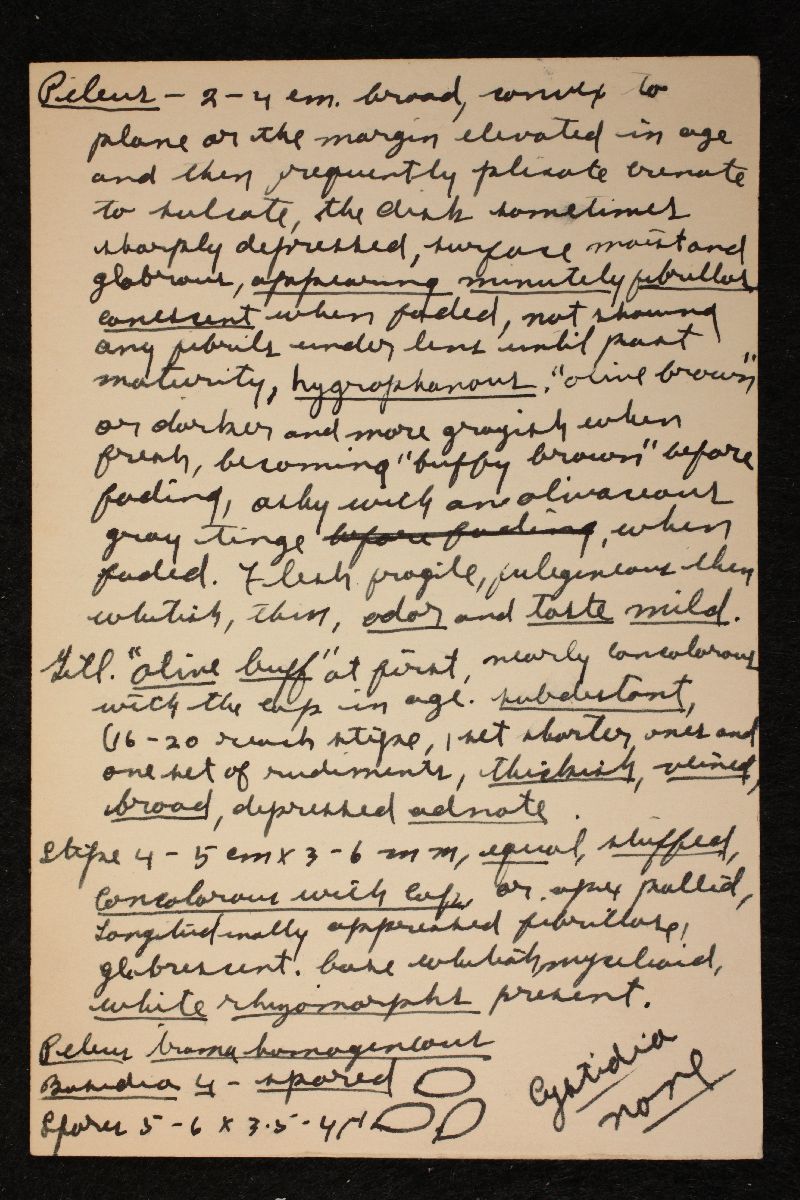 Pileus - 2-4 cm. broad, convex to
plane or the margin elevated in age
and then frequently plicate crenate
to sulcate, the disk sometimes
sharply depressed, surface moist and
glabrous, appearing minutely fibrillos
canescent when faded, not showing
any fibrils under lens until past
maturity, hygrophanous. "olive brown"
or darker and more grayish when
fresh, becoming "buffy brown" before
fading, ashy with an olivaceous
gray tinge before fading, when
faded. Flesh fragile, then
whitish, thin, odor and taste mild.
Gill. "olive buff" at first, nearly concolorous
with the cap in age. subdistant,
(16-20 reach stipe, 1 set shorter ones and
one set of rudiments, thickish, veined,
broad, depressed adnate.
Stipe 4-5 cm x 3-6 mm, equal, stuffed,
concolorous with cap, or apex pallid,
longitudinally appressed fibrillose,
glabrescent. base whitish mycelioid,
white rhyzomorphs present.
Pileus trama homogeneous
Basidia 4-spored
Spores 5-6 x 3.5-4 µ
Cystidia
none